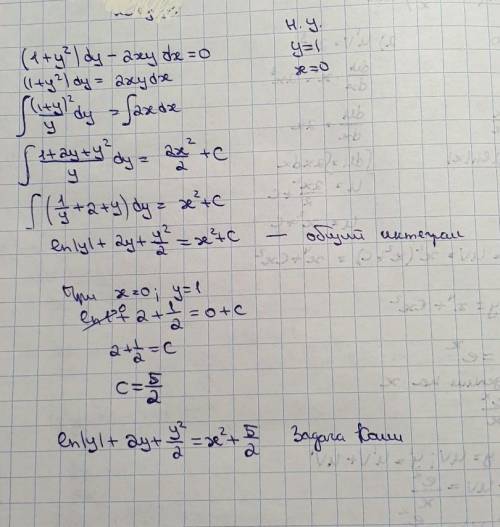 Н.У.
(1+y²)dy - 2xy dx = 0 y=1
(1+y²)dy = 2xy dx x=0
∫ (1+y)²/y dy = ∫ 2x dx
∫ (1+2y+y²)/y dy = 2x²/2 + C
∫ (1/y + 2 + y) dy = x² + C
ln|y| + 2y + y²/2 = x² + C — общий интеграл
При x=0; y=1
2 + 1/2 = 0 + C
2 + 1/2 = C
C = 5/2
ln|y| + 2y + y²/2 = x² + 5/2 Задача Коши